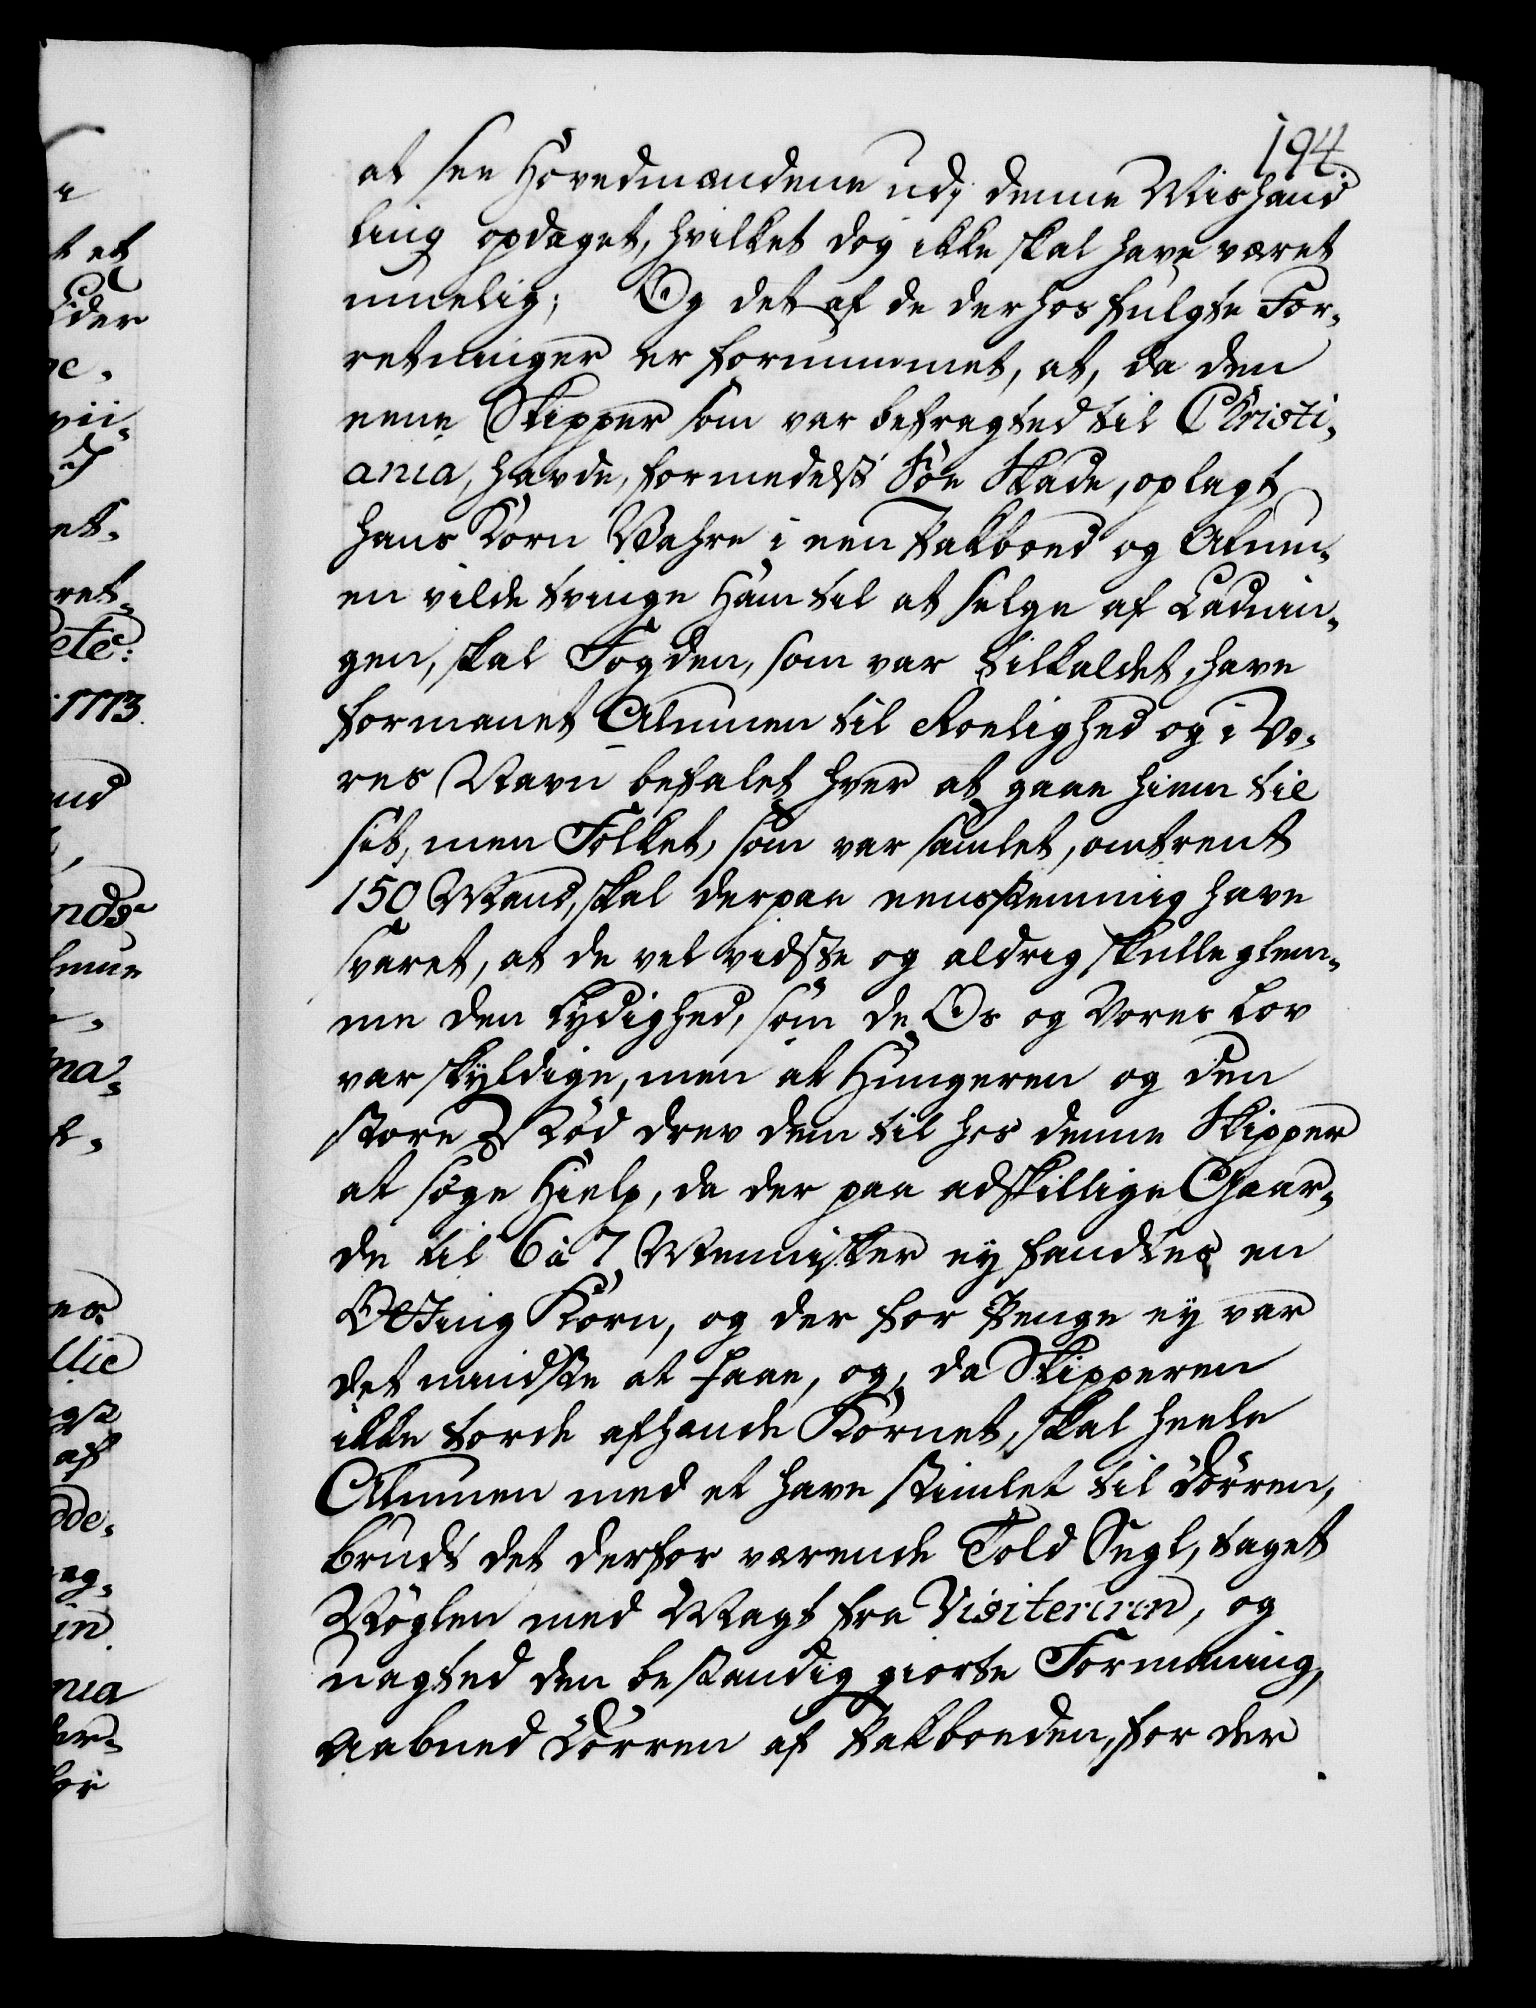 194.
at see Hovedmændene udj denne Mishand
ling opdaget, hvilket dog ikke skal have været
muelig; Og det af de derhos fulgte For-
retninger er fornummet, at, da den
eene Skipper som var befragted til Christi-
ania, havde, formedelst Søe Skade, oplagt
hans Korn Vahre i een Pakboed og Almu-
en vilde tvinge Ham til at selge af Ladnin-
gen, skal Fogden, som var tilkaldet, have
formanet Almuen til Roelighed og i Vo-
res Navn befalet hver at gaae hiem til
sit, men Folket, som var samlet, omtrent
150 Mand, skal derpaa eensstemmig have
svaret, at de vel vidste og aldrig skulle glem-
me den Lydighed, som de Os og Vores Lov
var skyldige, men at Hungeren og den
store Nød drev dem til hos denne Skipper
at søge Hielp, da der paa adskillige Gaar-
de til 6 à 7 Mennisker ey fandtes en
Otting Korn, og der for Penge ey var
det mindste at faae, og, da Skipperen
ikke torde afhænde Kornet, skal heele
Almuen med et have stimlet til Dørren,
brudt det derfor værende Told Segl, taget
Nøglen med Magt fra Visiteuren, og
uagted den bestandig giorte Formaning,
aabned Dørren af Pakboeden, for der
t et
ider
1773
nds
af